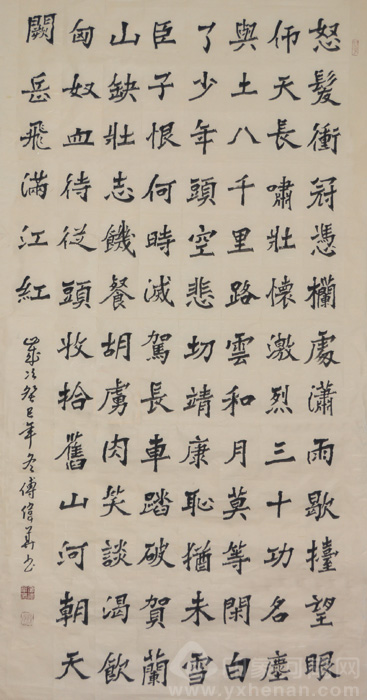 怒髮衝冠憑欄處瀟雨歇擡望眼
仰天長嘯壯懷激烈三十功名塵
與土八千里路雲和月莫等閑白
了少年頭空悲切靖康恥猶未雪
臣子恨何時滅駕長車踏破賀蘭
山缺壯志饑餐胡虜肉笑談渴飲
匈奴血待從頭收拾舊山河朝天
闕岳飛滿江紅
歲次癸巳年冬傅偉華书
www.yxhenan.com